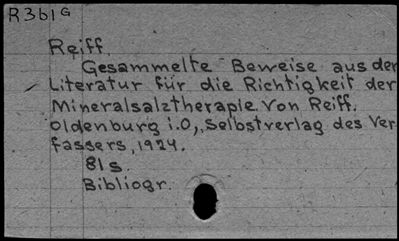 R3b1G
Reiff.
Gesammelte Beweise aus der
Literatur für die Richtigkeit der
Mineralsalztherapie. Von Reiff.
Oldenburg i.O., Selbstverlag des Ver
fassers, 1924.
81 s.
Bibliogr.